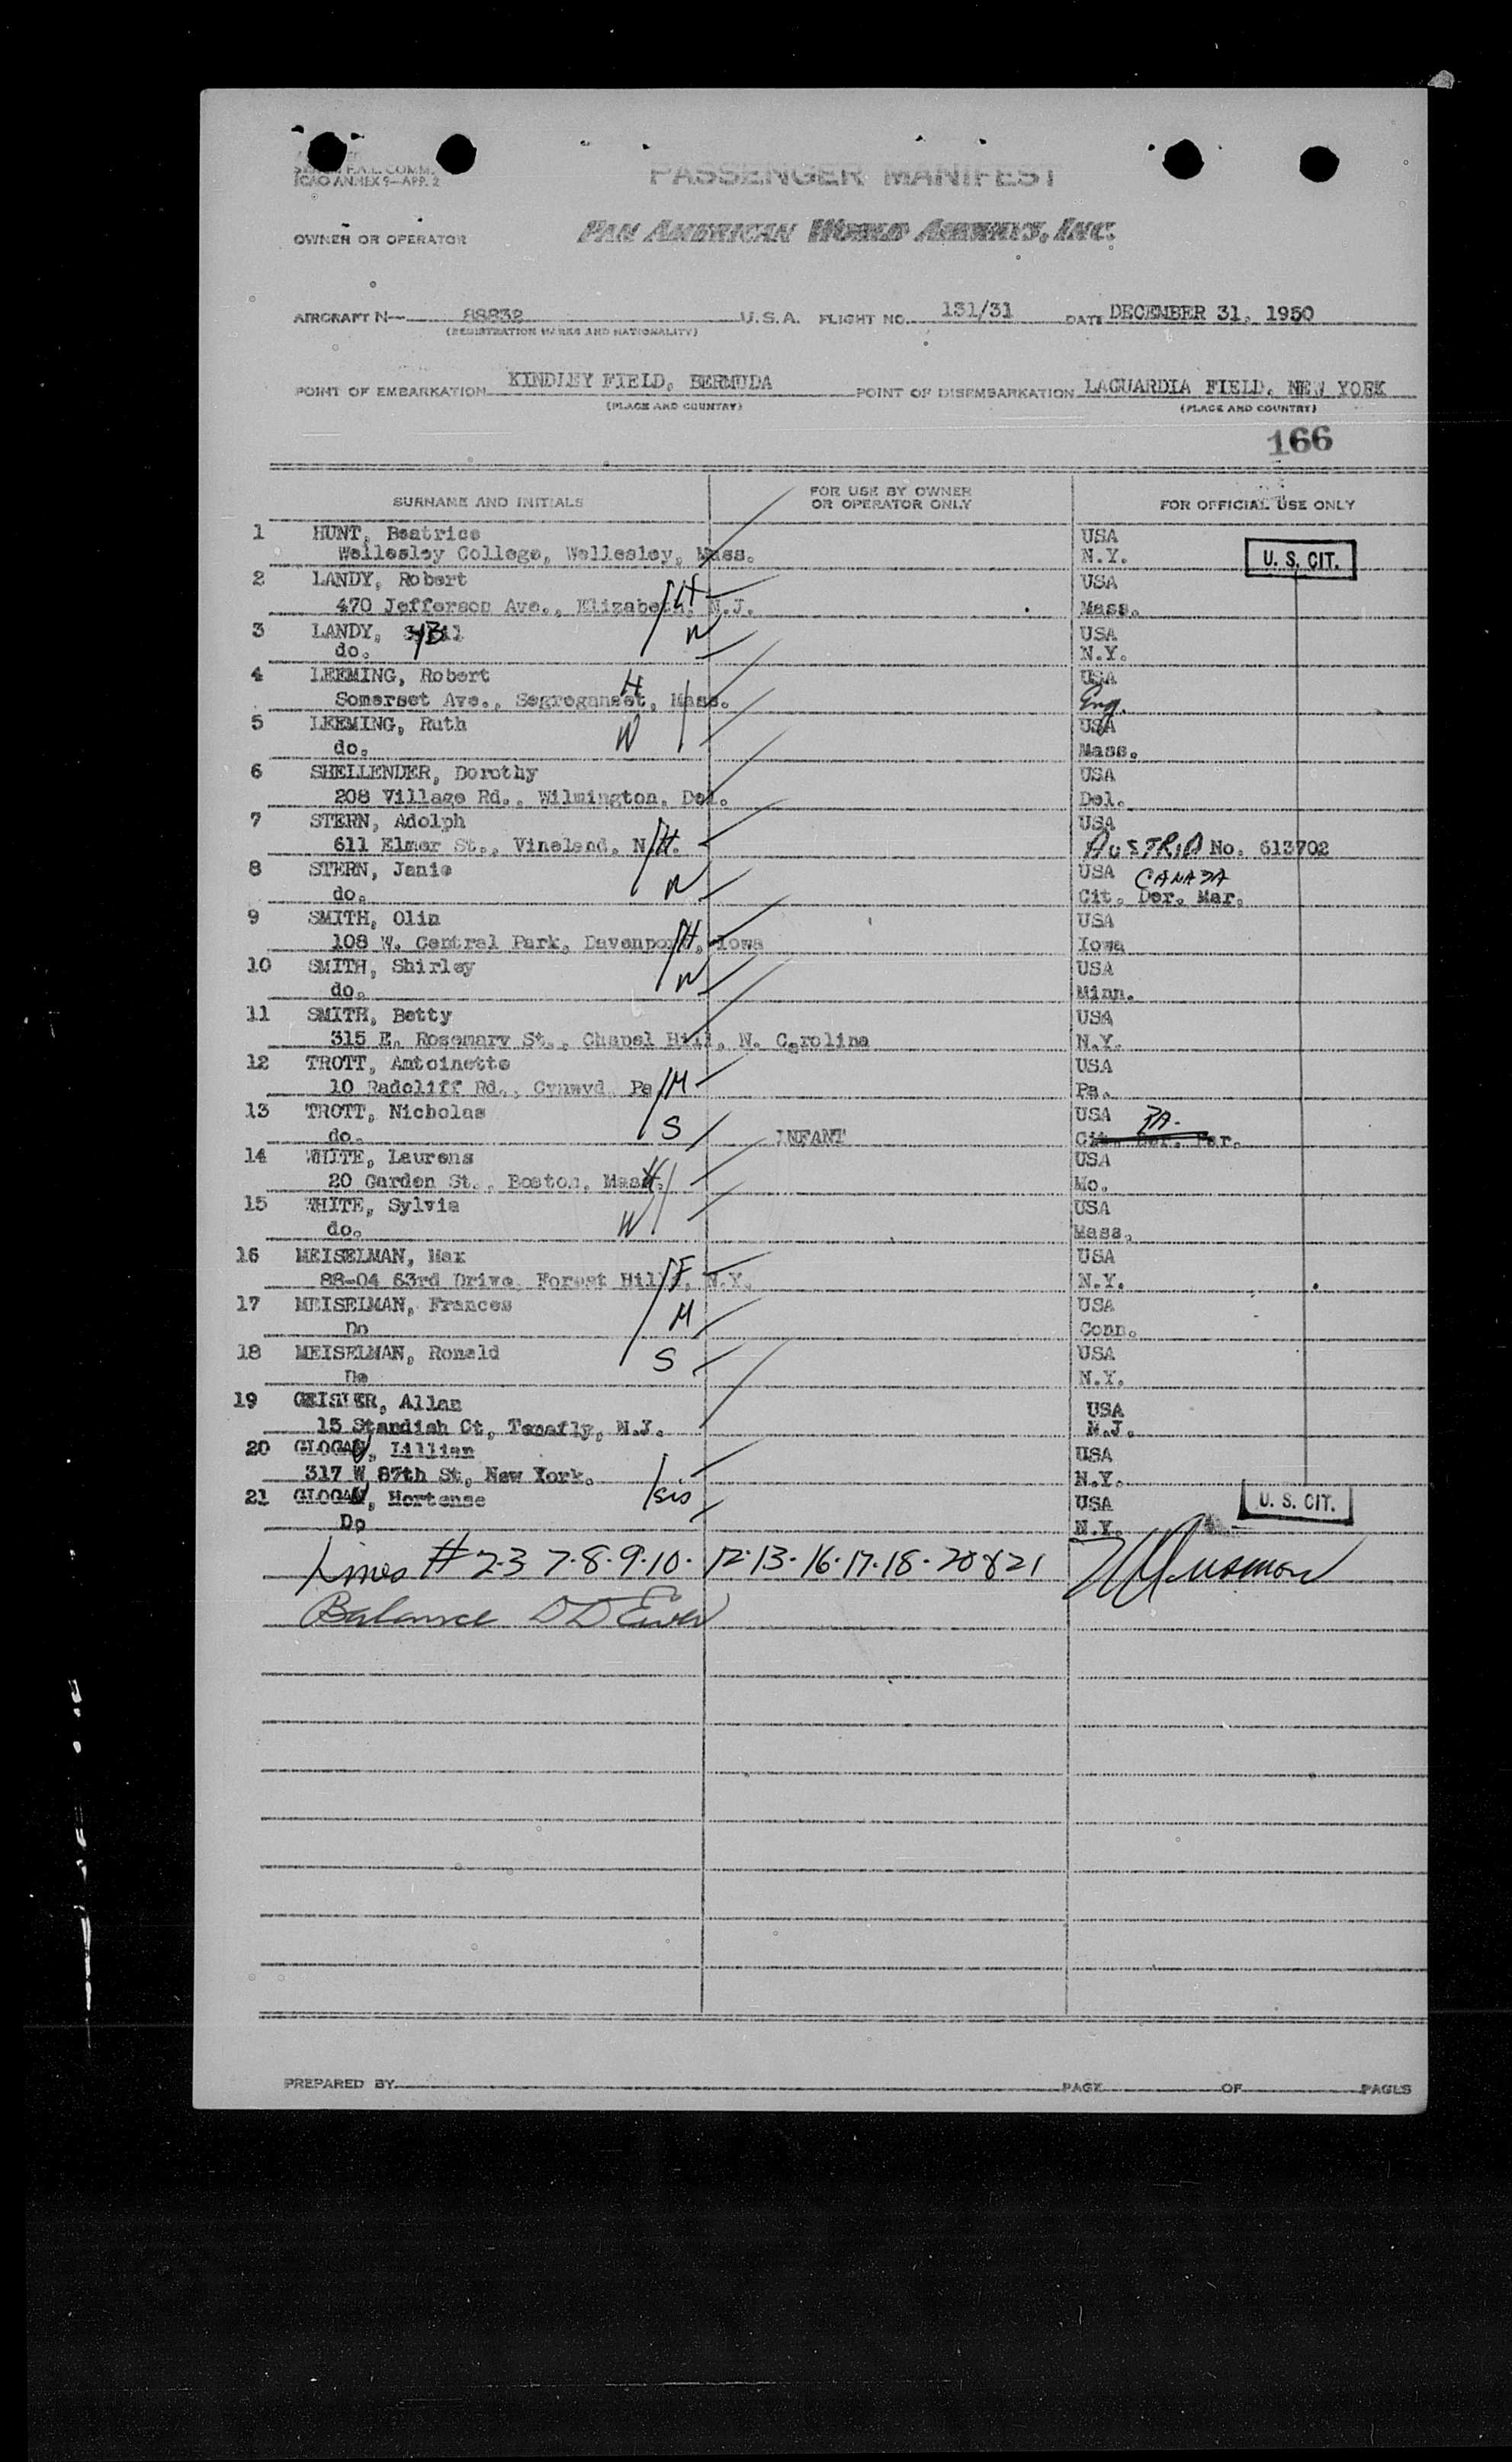 F.A.L. COMM.
ICAO ANNEX 9—APP. 2
PASSENGER MANIFEST
OWNER OR OPERATOR PAN AMERICAN WORLD AIRWAYS, INC.
AIRCRAFT N— 88832 U.S.A. FLIGHT NO. 131/31 DATE DECEMBER 31, 1950
(REGISTRATION MARKS AND NATIONALITY)
POINT OF EMBARKATION KINDLEY FIELD, BERMUDA POINT OF DISEMBARKATION LAGUARDIA FIELD, NEW YORK
(PLACE AND COUNTRY) (PLACE AND COUNTRY)
166
SURNAME AND INITIALS FOR USE BY OWNER OR OPERATOR ONLY FOR OFFICIAL USE ONLY
1 HUNT, Beatrice USA
Wellesley College, Wellesley, Mass. N.Y. U. S. CIT.
2 LANDY, Robert USA
470 Jefferson Ave., Elizabeth, N.J. H Mass.
3 LANDY, W USA
do. N.Y.
4 LEEMING, Robert USA
Somerset Ave., Segreganset, Mass. H Eng.
5 LEEMING, Ruth W USA
do. Mass.
6 SHELLENDER, Dorothy USA
208 Village Rd., Wilmington, Del. Del.
7 STERN, Adolph USA
611 Elmer St., Vineland, N.J. H. AUSTRIA No. 613702
8 STERN, Janie USA CANADA
do. W Cit. Der. Mar.
9 SMITH, Olin USA
108 W. Central Park, Davenport, Iowa H Iowa
10 SMITH, Shirley USA
do. W Minn.
11 SMITH, Betty USA
315 E. Rosemary St., Chapel Hill, N. Carolina N.Y.
12 TROTT, Antoinette USA
10 Radcliff Rd., Cynwyd, Pa M Pa.
13 TROTT, Nicholas USA PA.
do. S INFANT Cit. Der. Par.
14 WHITE, Laurens USA
20 Garden St., Boston, Mass. H Mo.
15 WHITE, Sylvia USA
do. W Mass.
16 MEISELMAN, Max USA
88-04 63rd Drive, Forest Hills, N.Y. F N.Y.
17 MEISELMAN, Frances USA
Do M Conn.
18 MEISELMAN, Ronald S USA
Do N.Y.
19 GEISLER, Allan USA
15 Standish Ct, Tenafly, N.J. N.J.
20 GLOGAU, Lillian USA
317 W 87th St, New York. N.Y.
21 GLOGAU, Hortense sis USA U. S. CIT.
Do N.Y.
Lines # 2·3 7·8·9·10· 12·13·16·17·18·20&21
Balance D D
PREPARED BY PAGE OF PAGES